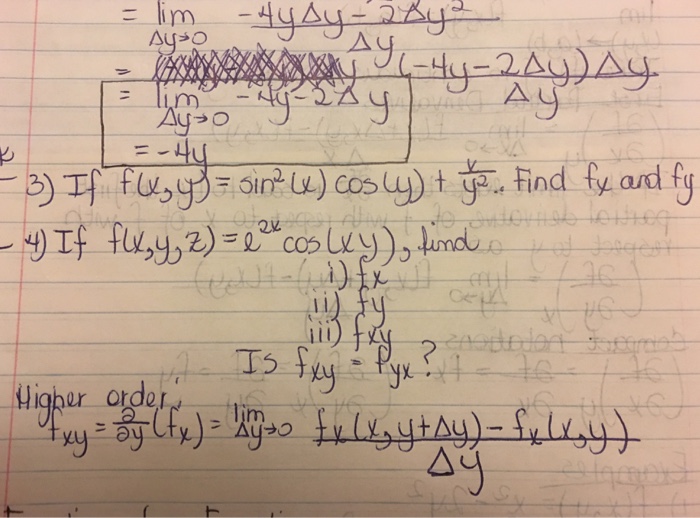 = lim Δy→0 -4yΔy - 2Δy² / Δy
= (-4y - 2Δy)Δy / Δy
= lim Δy→0 -4y - 2Δy
= -4y
3) If f(x,y) = sin²(x) cos(y) + x/y². Find fx and fy
4) If f(x,y,z) = e^2x cos(xy), find
i) fx
ii) fy
iii) fxy
Is fxy = fyx?
Higher order:
fxy = ∂/∂y (fx) = lim Δy→0 fx(x, y+Δy) - fx(x,y) / Δy